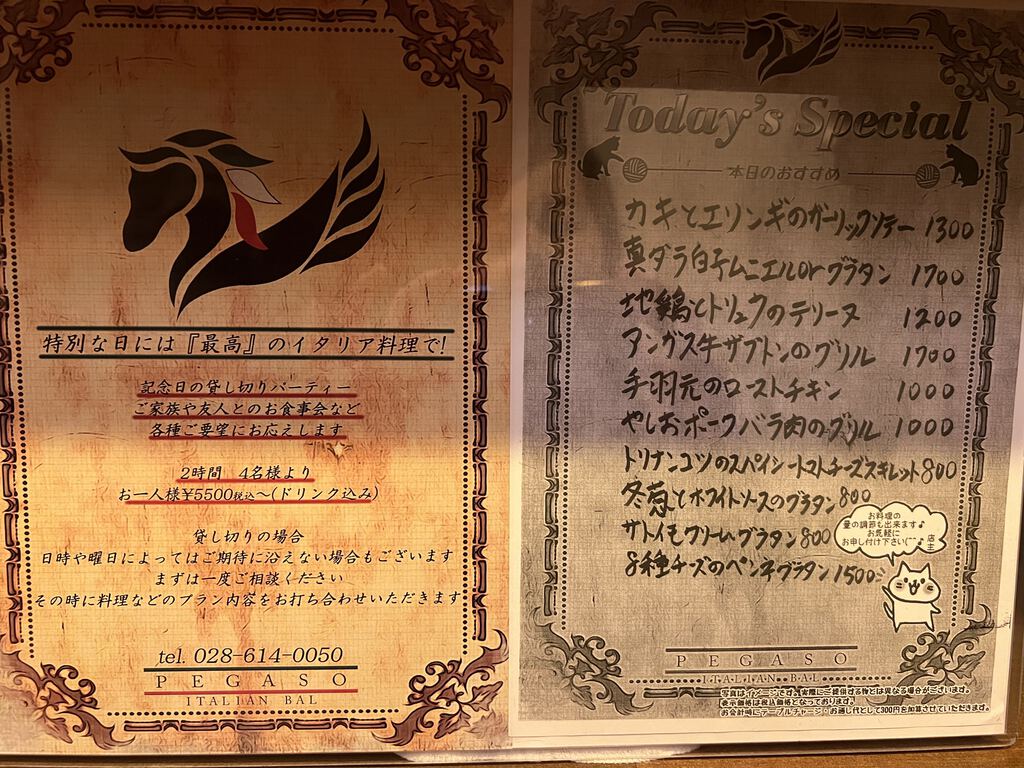 特別な日には『最高』のイタリア料理で!
記念日の貸し切りパーティー
ご家族や友人とのお食事会など
各種ご要望にお応えします
2時間 4名様より
お一人様¥5500税込~(ドリンク込み)
貸し切りの場合
日時や曜日によってはご期待に沿えない場合もございます
まずは一度ご相談ください
その時に料理などのプラン内容をお打ち合わせいただきます
tel. 028-614-0050
PEGASO
ITALIAN BAL
Today's Special
本日のおすすめ
カキとエリンギのガーリックソテー 1300
真ダラ白子ムニエルorグラタン 1700
地鶏とトリュフのテリーヌ 1200
アンガス牛ザブトンのグリル 1700
手羽元のローストチキン 1000
やしおポークバラ肉のグリル 1000
トリナンコツのスパイシートマトチーズスキレット 800
冬葱とホワイトソースのグラタン 800
サトイモクリームグラタン 800
8種チーズのペンネグラタン 1500
お料理の
量の調節も出来ます♪
お気軽に
お申し付け下さい(^^♪
店主
PEGASO
ITALIAN BAL
写真はイメージです。実際にご提供する物とは異なる場合がございます。
表示価格は税込価格となっております。
お会計時にテーブルチャージ・お通し代として300円を加算させていただきます。